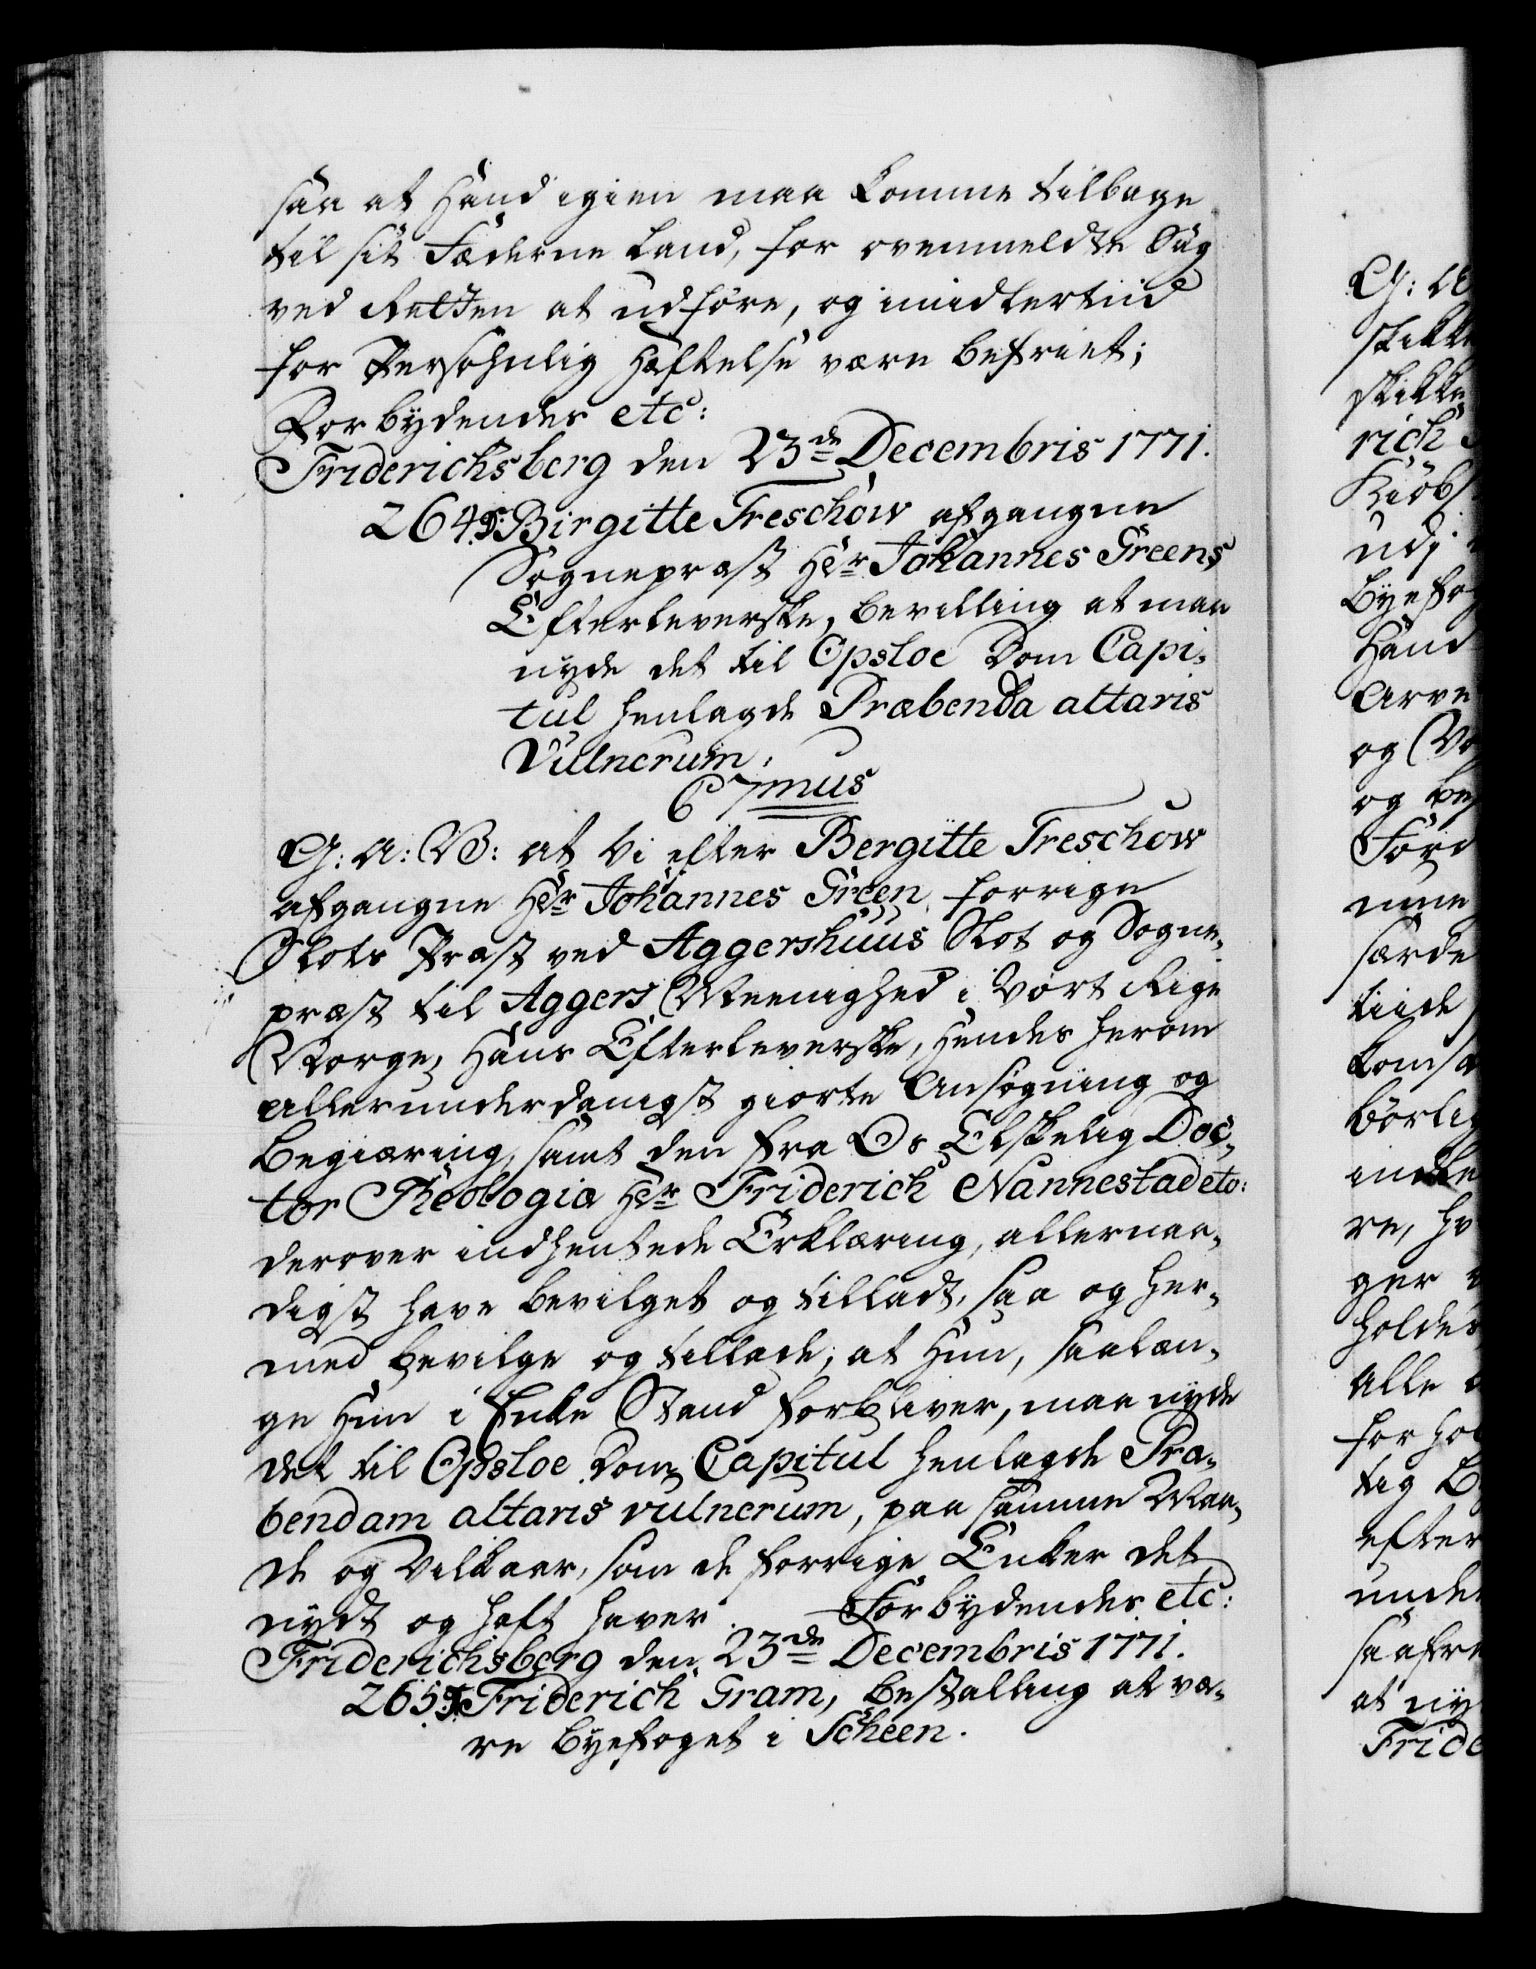 saa at Hand igien maa komme tilbage
til sit Fæderne Land, for ovenmeldte Sag
ved Retten at udføre, og imidlertiid
for Persohnlig Hæftelse være befriet;
Forbydendes etc:
Friderichsberg den 23de Decembris 1771.
264. Birgitte Treschow afgangne
Sognepræst Hr Johannes Greens
Efterleverske, bevilling at maa
nyde det til Opsloe Dom Capi-
tul henlagde Præbenda altaris
Vulnerum.
C7mus
G: A: V: at Vi efter Bergitte Treschow
afgangne Hr Johannes Green, forrige
Slots Præst ved Aggershuus Slot og Sogne-
præst til Aggers Meenighed i Vort Rige
Norge, Hans Efterleverske, Hendes herom
allerunderdanigst giorte Ansøgning og
Begiæring, samt den fra Os Elskelig Doc-
tor Theologiæ Hr Friderich Nannestad etc:
derover indhentede Erklæring, allernaa-
digst have bevilget og tilladt, saa og her-
med bevilge og tillade, at Hun, saalæn-
ge Hun i Enke Stand forbliver, maa nyde
det til Opsloe Dom Capitul henlagde Præ-
bendam altaris vulnerum, paa samme Maa-
de og Vilkaar, som de forrige Enker det
nydt og haft haver. Forbydendes etc:
Friderichsberg den 23de Decembris 1771.
265. Friderich Gram, bestalling at væ-
re byefoget i Scheen.
G: A:
skikke
skikke
rich
Kiöb
udj
byefog
Hand
Arve
og
og be
Förd
mme
særde
tiide
kom
börlig
re, hv
ger
holde
alle
for ho
tig B
efter
unde
saafre
at ny
Fride